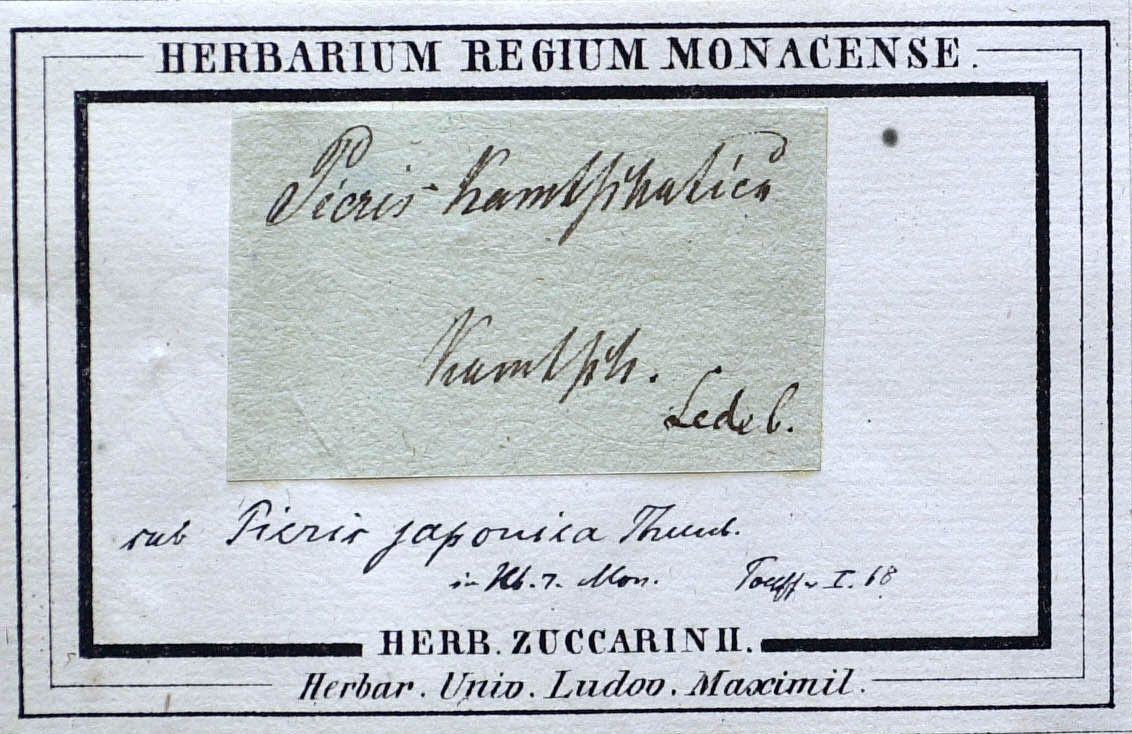 HERBARIUM REGIUM MONACENSE.
Picris Kamtschatica
Kamtsch.
Ledeb.
sub Picris japonica Thunb.
in Hb. r. Mon. I. 68
HERB. ZUCCARINII.
Herbar. Univ. Ludov. Maximil.